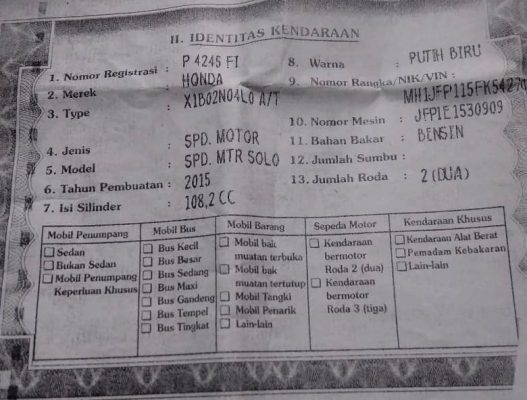 II. IDENTITAS KENDARAAN
1. Nomor Registrasi : P 4245 FI
2. Merek : HONDA
3. Type : X1B02N04L0 A/T
4. Jenis : SPD. MOTOR
5. Model : SPD. MTR SOLO
6. Tahun Pembuatan : 2015
7. Isi Silinder : 108,2 CC
8. Warna : PUTIH BIRU
9. Nomor Rangka/NIK/VIN :
10. Nomor Mesin : JFP1E1530909
11. Bahan Bakar : BENSIN
12. Jumlah Sumbu :
13. Jumlah Roda : 2 (DUA)
Mobil Penumpang
Sedan
Bukan Sedan
Mobil Penumpang
Keperluan Khusus
Mobil Bus
Bus Kecil
Bus Besar
Bus Sedang
Bus Maxi
Bus Gandeng
Bus Tempel
Bus Tingkat
Mobil Barang
Mobil bak
muatan terbuka
Mobil bak
muatan tertutup
Mobil Tangki
Mobil Penarik
Lain-lain
Sepeda Motor
Kendaraan
bermotor
Roda 2 (dua)
Kendaraan
bermotor
Roda 3 (tiga)
Kendaraan Khusus
Kendaraan Alat Berat
Pemadam Kebakaran
Lain-lain